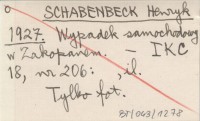 SCHABENBECK Henryk
1927. Wypadek samochodowy
w Zakopanem. - IKC
18, nr 206: , il.
Tylko fot.
BT/043/1278